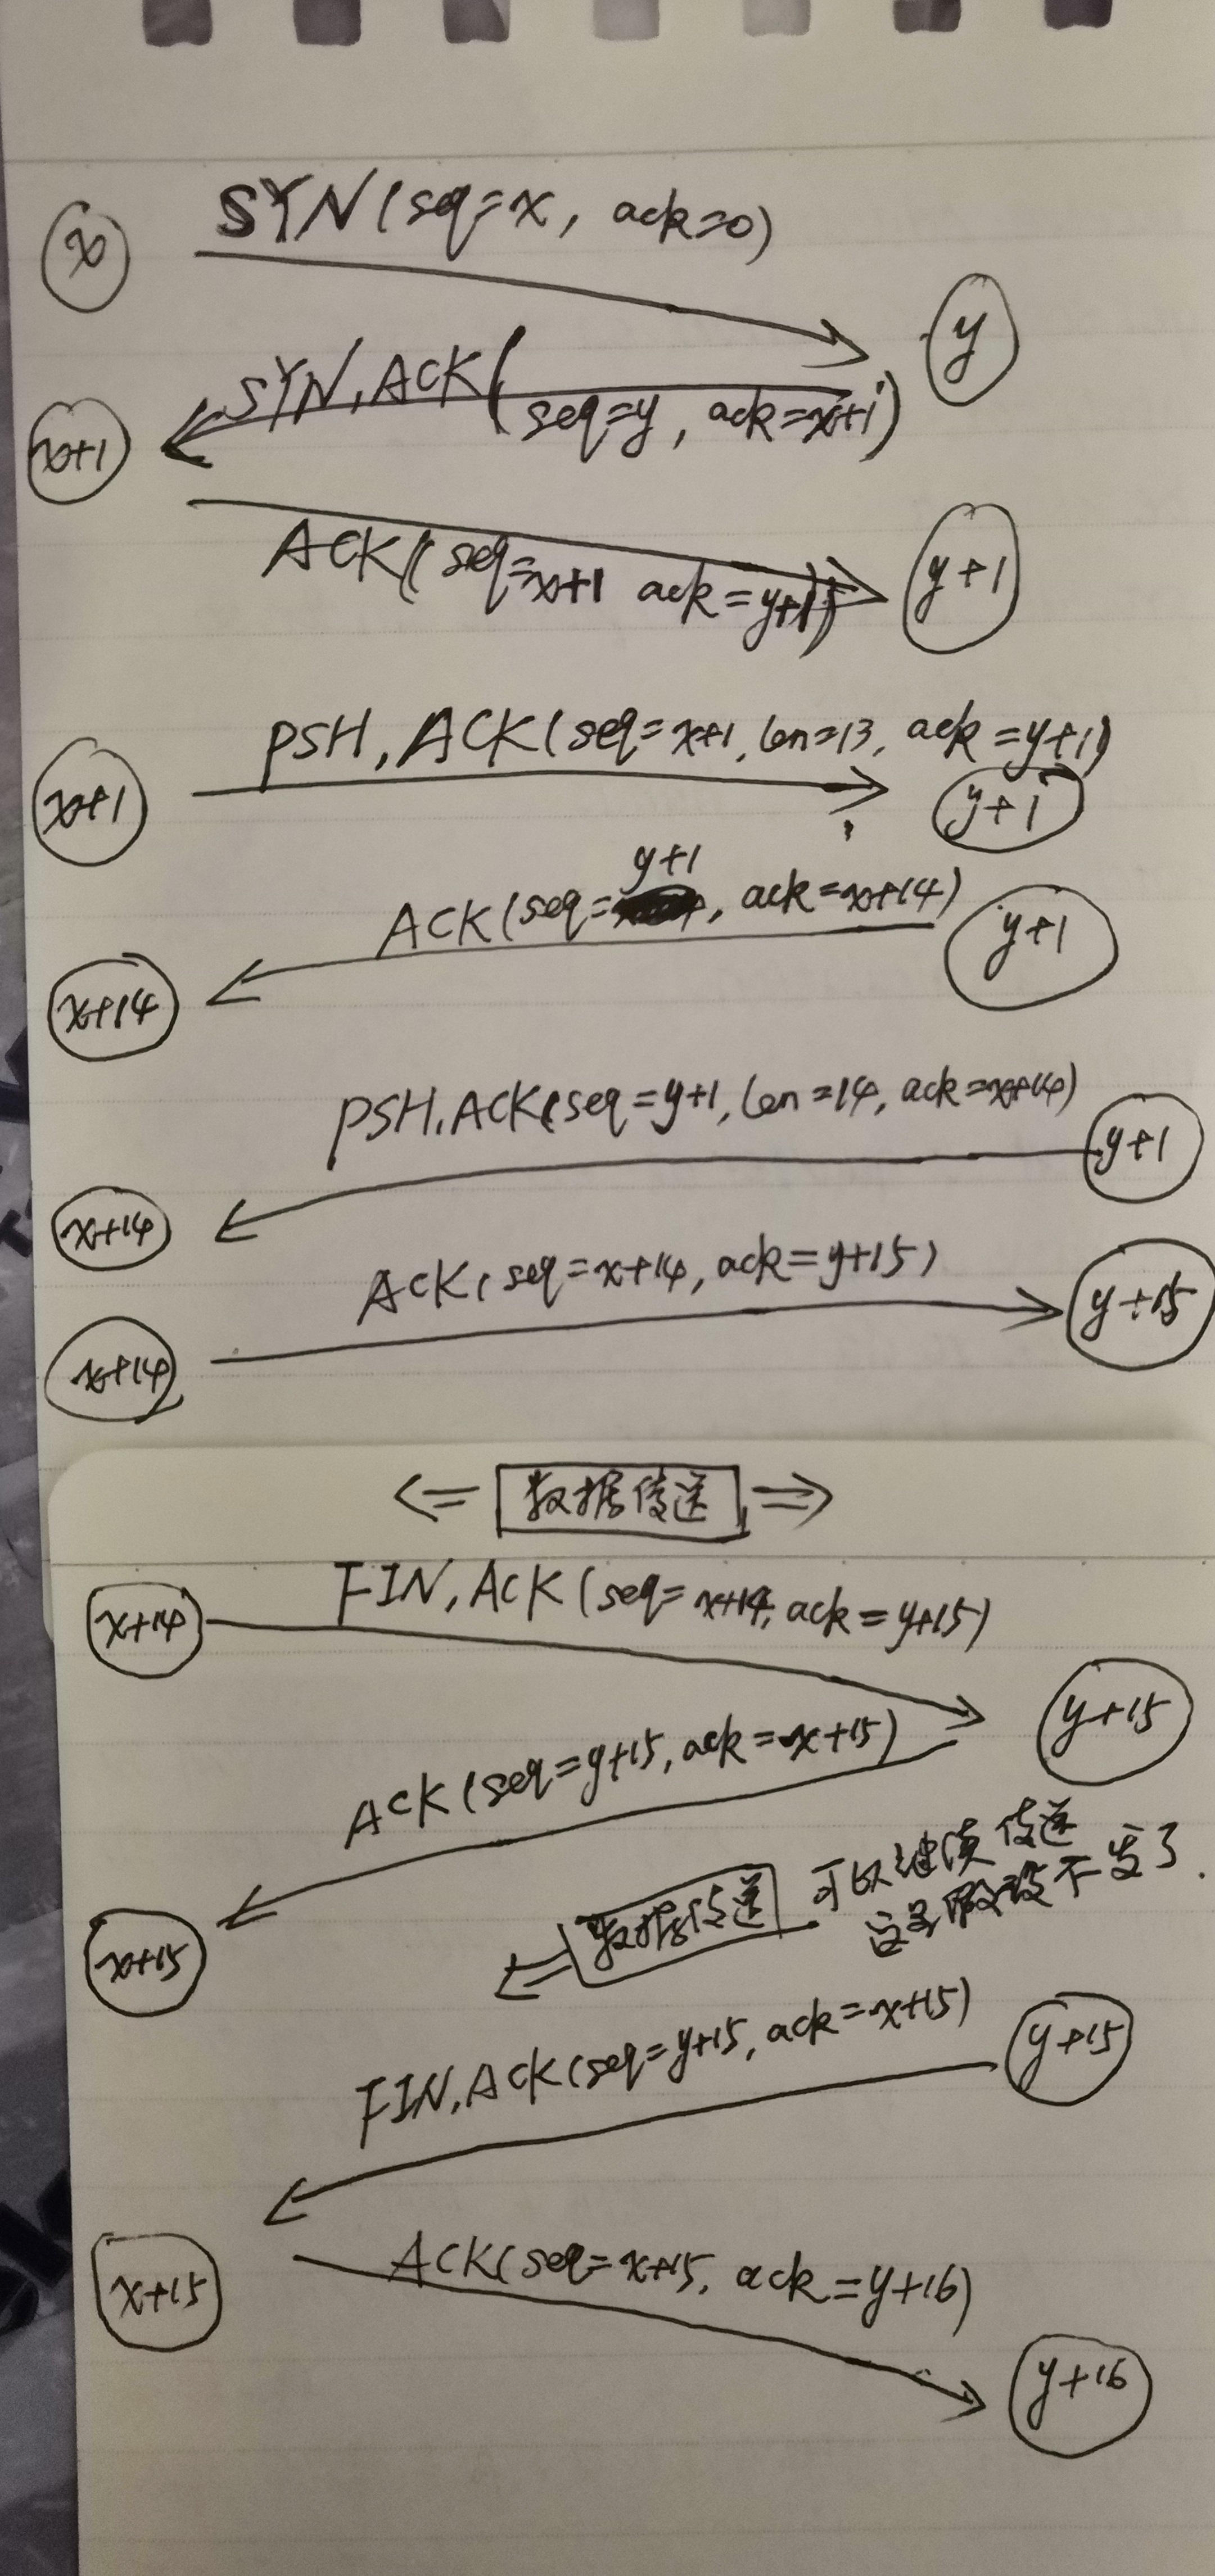 SYN(seq=x, ack=0)
x
y
SYN,ACK(seq=y, ack=x+1)
x+1
ACK(seq=x+1 ack=y+1)
y+1
PSH,ACK(seq=x+1,len=13,ack=y+1)
x+1
y+1
y+1
ACK(seq=, ack=x+14)
y+1
x+14
PSH,ACK(seq=y+1,len=14,ack=x+14)
y+1
x+14
ACK(seq=x+14,ack=y+15)
y+15
x+14
<= 数据传送 =>
FIN,ACK(seq=x+14,ack=y+15)
x+14
y+15
ACK(seq=y+15,ack=x+15)
x+15
<= 数据传送 可以继续传送
这里假设不发了.
FIN,ACK(seq=y+15,ack=x+15)
y+15
ACK(seq=x+15, ack=y+16)
x+15
y+16